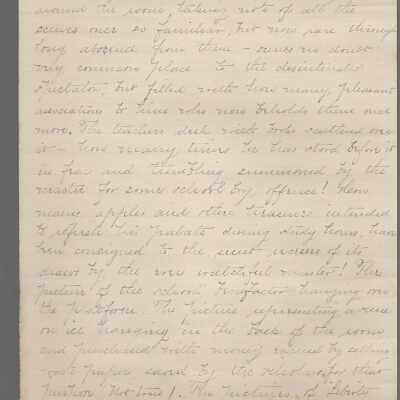 around the room, taking note of all the
scenes once so familiar, but now rare through
long absence from them – scenes no doubt
very common place to the disinterested
Spectator, but filled with how many pleasant
associations to him who now beholds them once
more. The teachers desk with books scattered over
it – how many times he has stood before it
in fear and trembling summoned by the
master for some school boy offence! How
many apples and other treasures intended
to refresh his palate during study hours, have
been consigned to the secret recesses of its
drawer by the ever watchful master! The
picture of the schools benefactor hanging over
the platform. The picture representing a scene
on ice hanging in the back of the room
and purchased with money raised by selling
paper saved by the scholars for that
The pictures of "Liberty